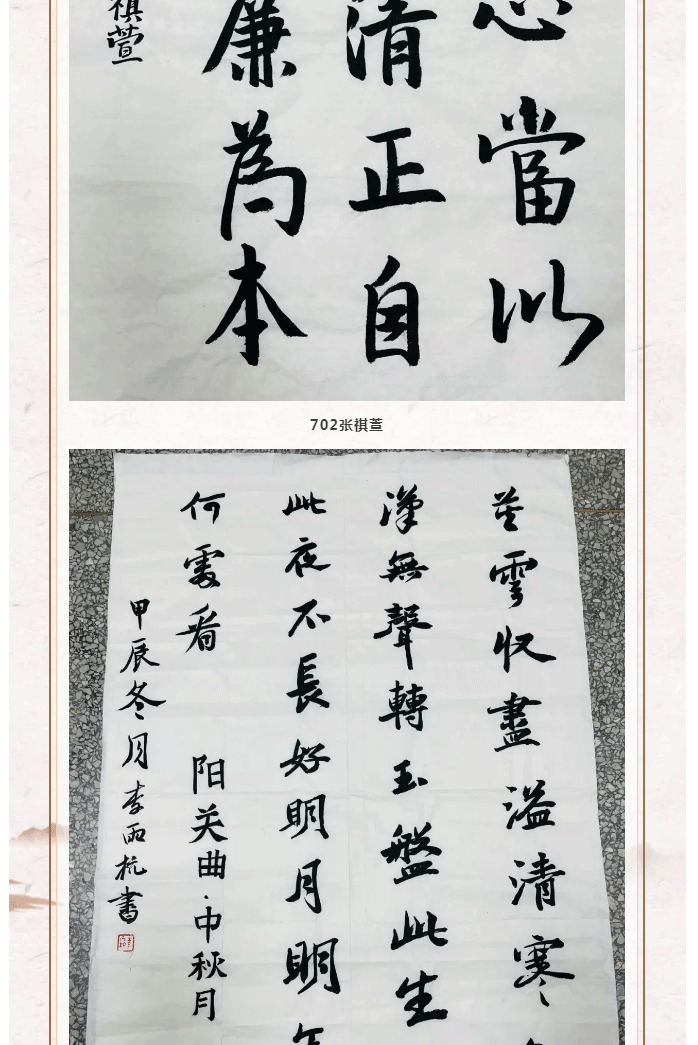 心當以
清正自
廉為本
祺萱
702张祺萱
暮雲收盡溢清寒
漢無聲轉玉盤此生
此夜不長好明月明年
何處看
阳关曲·中秋月
甲辰冬月李雨杭書